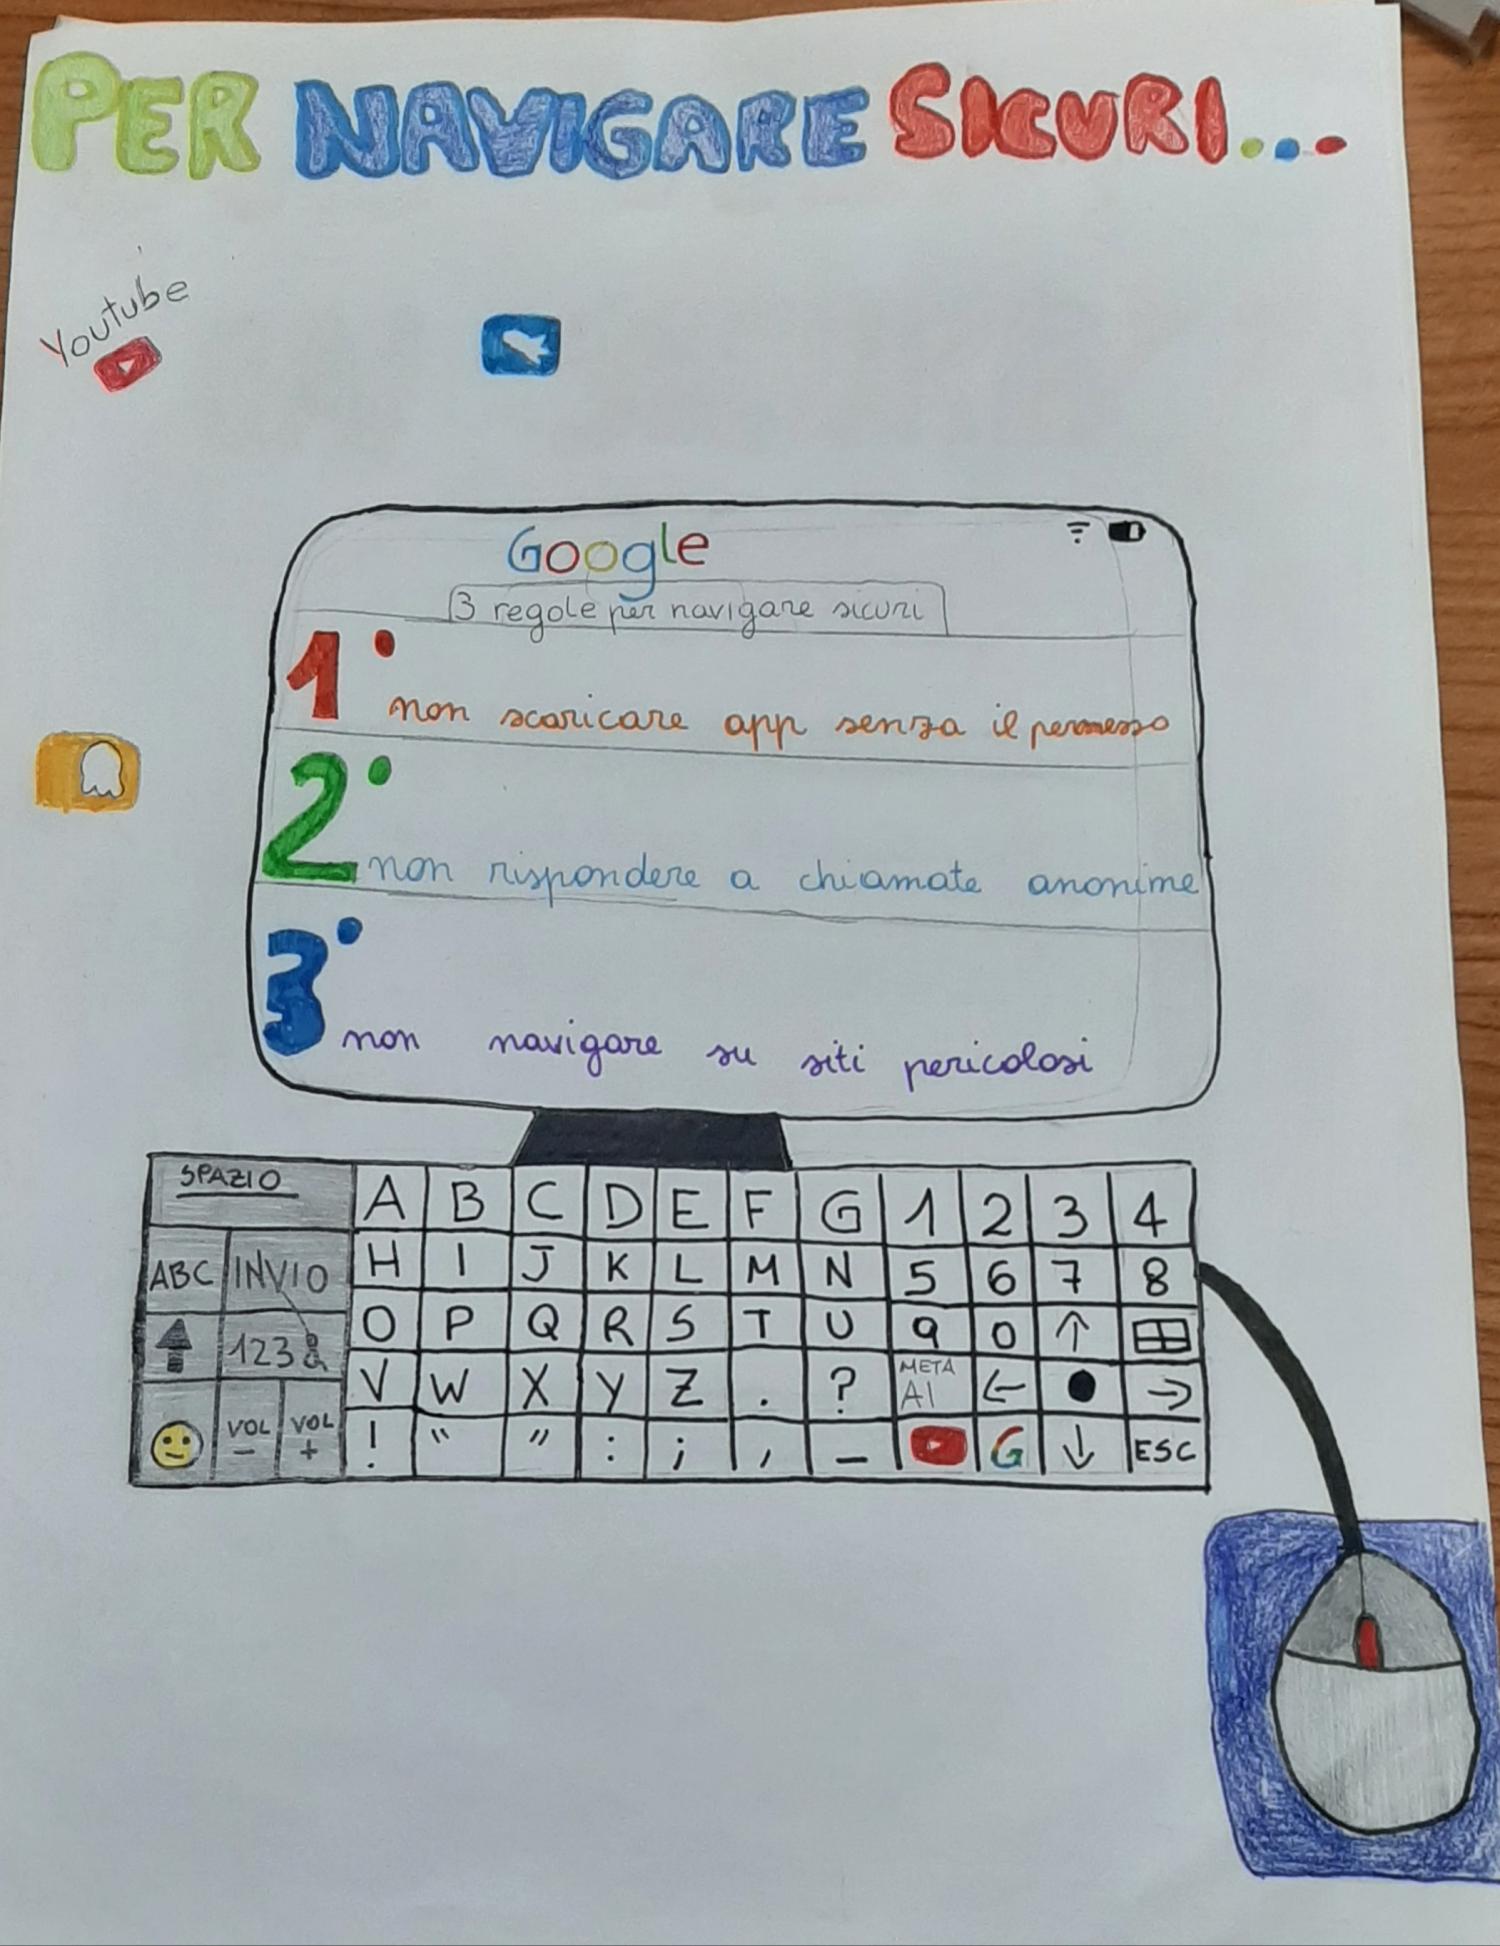 PER NAVIGARE SICURI...
Youtube
Google
3 regole per navigare sicuri
1°
non scaricare app senza il permesso
2°
non rispondere a chiamate anonime
3°
non navigare su siti pericolosi
SPAZIO A B C D E F G 1 2 3 4
ABC INVIO H I J K L M N 5 6 7 8
123 & O P Q R S T U 9 0 ↑
V W X Y Z . ? META AI ← ● →
VOL - VOL + ! “ ” : ; , _ G ↓ ESC